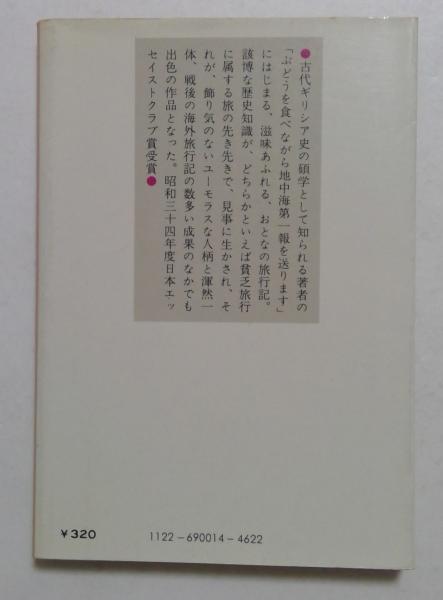 ●古代ギリシア史の碩学として知られる著者の
「ぶどうを食べながら地中海第一報を送ります」
にはじまる、滋味あふれる、おとなの旅行記。
該博な歴史知識が、どちらかといえば貧乏旅行
に属する旅の先き先きで、見事に生かされ、そ
れが、飾り気のないユーモラスな人柄と渾然一
体、戦後の海外旅行記の数多い成果のなかでも
出色の作品となった。昭和三十四年度日本エッ
セイストクラブ賞受賞●
¥320
1122-690014-4622